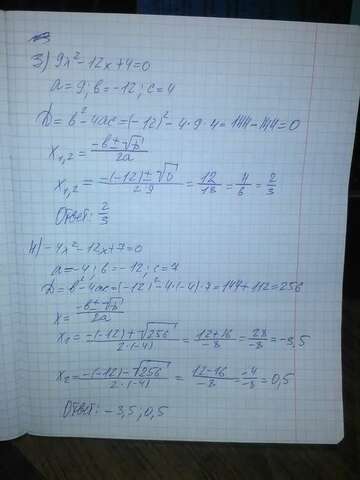 3) 9x² - 12x + 4 = 0
a = 9; в = -12; c = 4
D = в² - 4ac = (-12)² - 4·9·4 = 144 - 144 = 0
x₁,₂ = (-в ± √D)/2a
x₁,₂ = (-(-12) ± √0)/(2·9) = 12/18 = 4/6 = 2/3
Ответ: 2/3
4) -4x² - 12x + 7 = 0
a = -4; в = -12; c = 7
D = в² - 4ac = (-12)² - 4·(-4)·7 = 144 + 112 = 256
x = (-в ± √D)/2a
x₁ = (-(-12) + √256)/(2·(-4)) = (12+16)/-8 = 28/-8 = -3,5
x₂ = (-(-12) - √256)/(2·(-4)) = (12-16)/-8 = -4/-8 = 0,5
Ответ: -3,5; 0,5